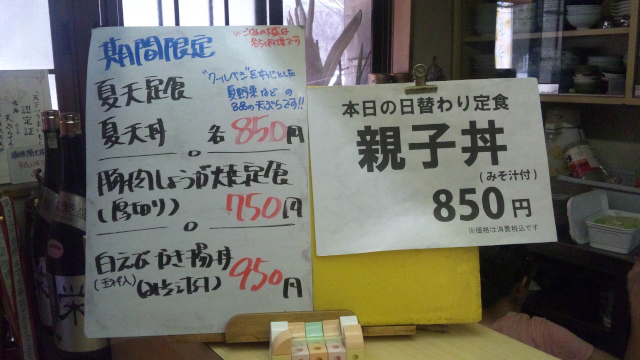 期間限定
※ごはんの大盛は
夏天定食
夏天丼 各850円
夏野菜などの
8品の天ぷらです!!
豚肉しょうが焼定食
(厚切り) 750円
白えびかき揚丼
(みそ汁付) 950円
本日の日替わり定食
親子丼
(みそ汁付)
850円
※価格は消費税込です
認定証